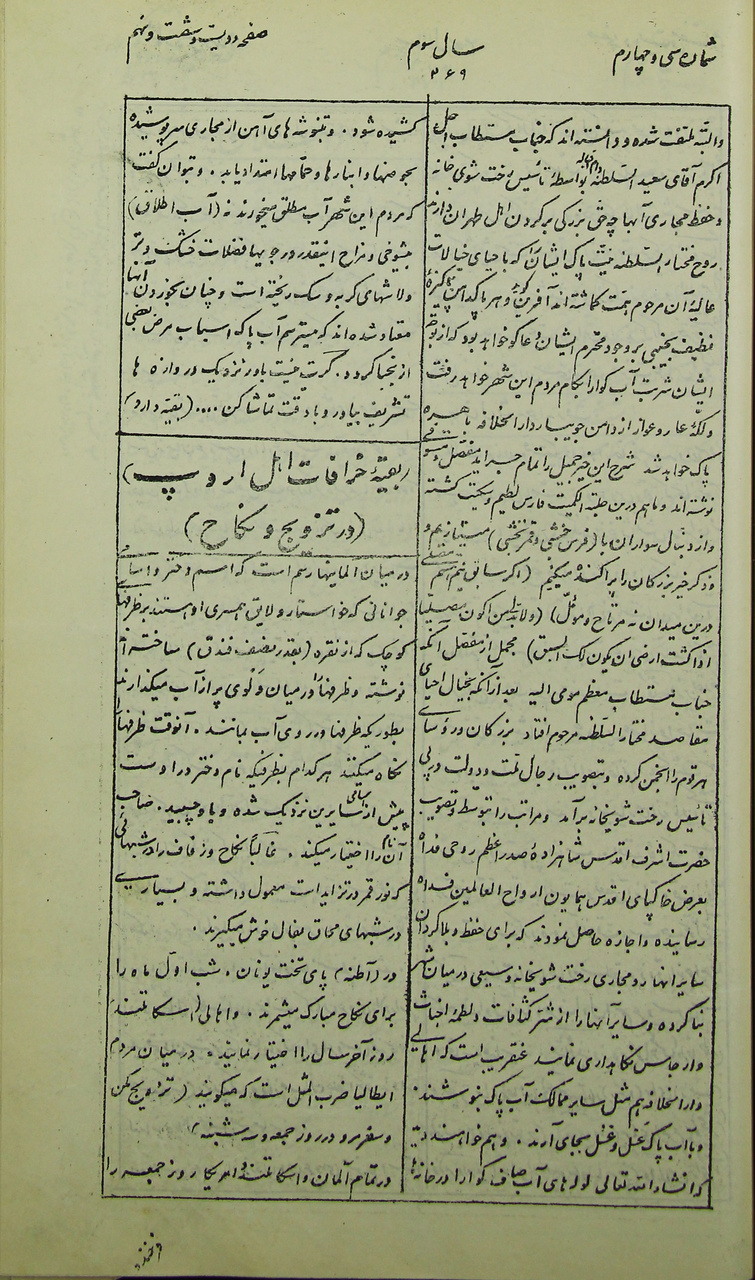 شماره سی و چهارم
سال سوم
۲۶۹
صفحه دویست و شصت و نهم
والبته ملتفت شده و دانسته اند که جناب مستطاب اجل
اکرم آقای سعید السلطنه دام اقباله بواسطهٔ تأسیس رخت شوی خانه
و حفظ مجاری آبها چه حق بزرگی برگردن اهل طهران دارند
روح مختار السلطنه نیت پاک ایشان که باحیای خیالات
عالیهٔ آن مرحوم همت گماشته اند آفرین گوید و هر پاکدامن پاکیزهٔ
نظیف نجیبی بر وجود محترم ایشان دعا گو خواهد بود که از توجه
ایشان شربت آب گوارا بکام مردم این شهر خواهد رفت
ولکهٔ عار و عوار از دامن جویبار دارالخلافه باهره
پاک خواهد شد شرح این خبر جمیل را تمام جراید مفصل
نوشته اند و ما هم درین حلبه الکمیت فارس لطیم و سکیت گشته
و از دنبال سواران با (فرس خمشی و قمر نخشی)
و ذکر خیر بزرگان را پراکنده میکنیم (اگر سابق نیم هستم
درین میدان نه مرتاح و مؤمل) (ولابد لی من ان اکون مصلیا
اذا کنت ارضی ان یکون لک السبق) مجمل از مفصل آنکه
جناب مستطاب معظم مومی الیه بعد از آنکه بخیال احیای
مقاصد مختار السلطنه مرحوم افتاد بزرگان و رؤسای
هر قوم را انجمن کرده و بتصویب رجال ملت و دولت در پی
تأسیس رخت شویخانه برآمد و مراتب را بتوسط و تصویب
حضرت اشرف اقدس شاهزادهٔ صدراعظم روحی فداه
بعرض خاکپای اقدس همایون ارواح العالمین فداه
رسانیده و اجازه حاصل نمودند که برای حفظ و پاک کردن
سایر آبها رو مجاری رخت شویخانه وسیعی در میان شهر
بنا کرده و سایر آبها را از شر کثافات و لطمهٔ اخباث
وارجاس نگاهداری نمایند عنقریب است که اهالی
دارالخلافه هم مثل سایر ممالک آب پاک بنوشند
و با آب پاک غسل و غسل بجای آرند . و هم خواهند دید
که انشاءالله تعالی لوله‌های آب صاف گوارا در خانها
کشیده شود . و تنبوشه های آهن از مجاری سرپوشیده
بحوضها و انبارها و حمامها امتداد یابد . و بتوان گفت
که مردم این شهر آب مطلق میخورند نه (آب اطلاق)
بشوخی و مزاح اینقدر در جویها فضلات خشک و تر
و لاشهای گربه و سگ ریخته است و چنان بخوردن آنها
معتاد شده اند که میترسم آب پاک اسباب مرض بعضی
از نجبا گردد . گرت نیست باور نزدیک دروازه ها
تشریف بیاور و با دقت تماشا کن .... (بقیه دارد)
(بقیهٔ خرافات اهل اروپ)
(در تزویج و نکاح)
در میان المانیها رسم است که اسم دختر و اسامی
جوانانی که خواستار و لایق همسری او هستند بر ظرفهای
کوچک که از نقره (بقدر نصف فندق) ساخته اند
نوشته و ظرفها را در میان دلوی پر از آب میگذارند
بطوریکه ظرفها در روی آب بمانند . آنوقت ظرفها را
نگاه میکنند هر کدام بظرفیکه نام دختر در او است
پیش از اسامی سایرین نزدیک شده و باو چسبید . صاحب
آن نام را اختیار میکند . غالباً نکاح و زفاف را در شبهائی
که نور قمر در تزاید است معمول داشته و بسیاری
در شبهای محاق بفال خوش میگیرند .
در (آطنه) پای تخت یونان . شب اول ماه را
برای نکاح مبارک میشمرند . و اهالی (اسکاتلند)
روز آخر سال را اختیار نمایند . در میان مردم
ایطالیا ضرب المثل است که میگویند (تزویج مکن
و سفر مرو در روز جمعه و سه شنبه)
در تمام آلمان و اسکاتلند و امریکا روز جمعه را